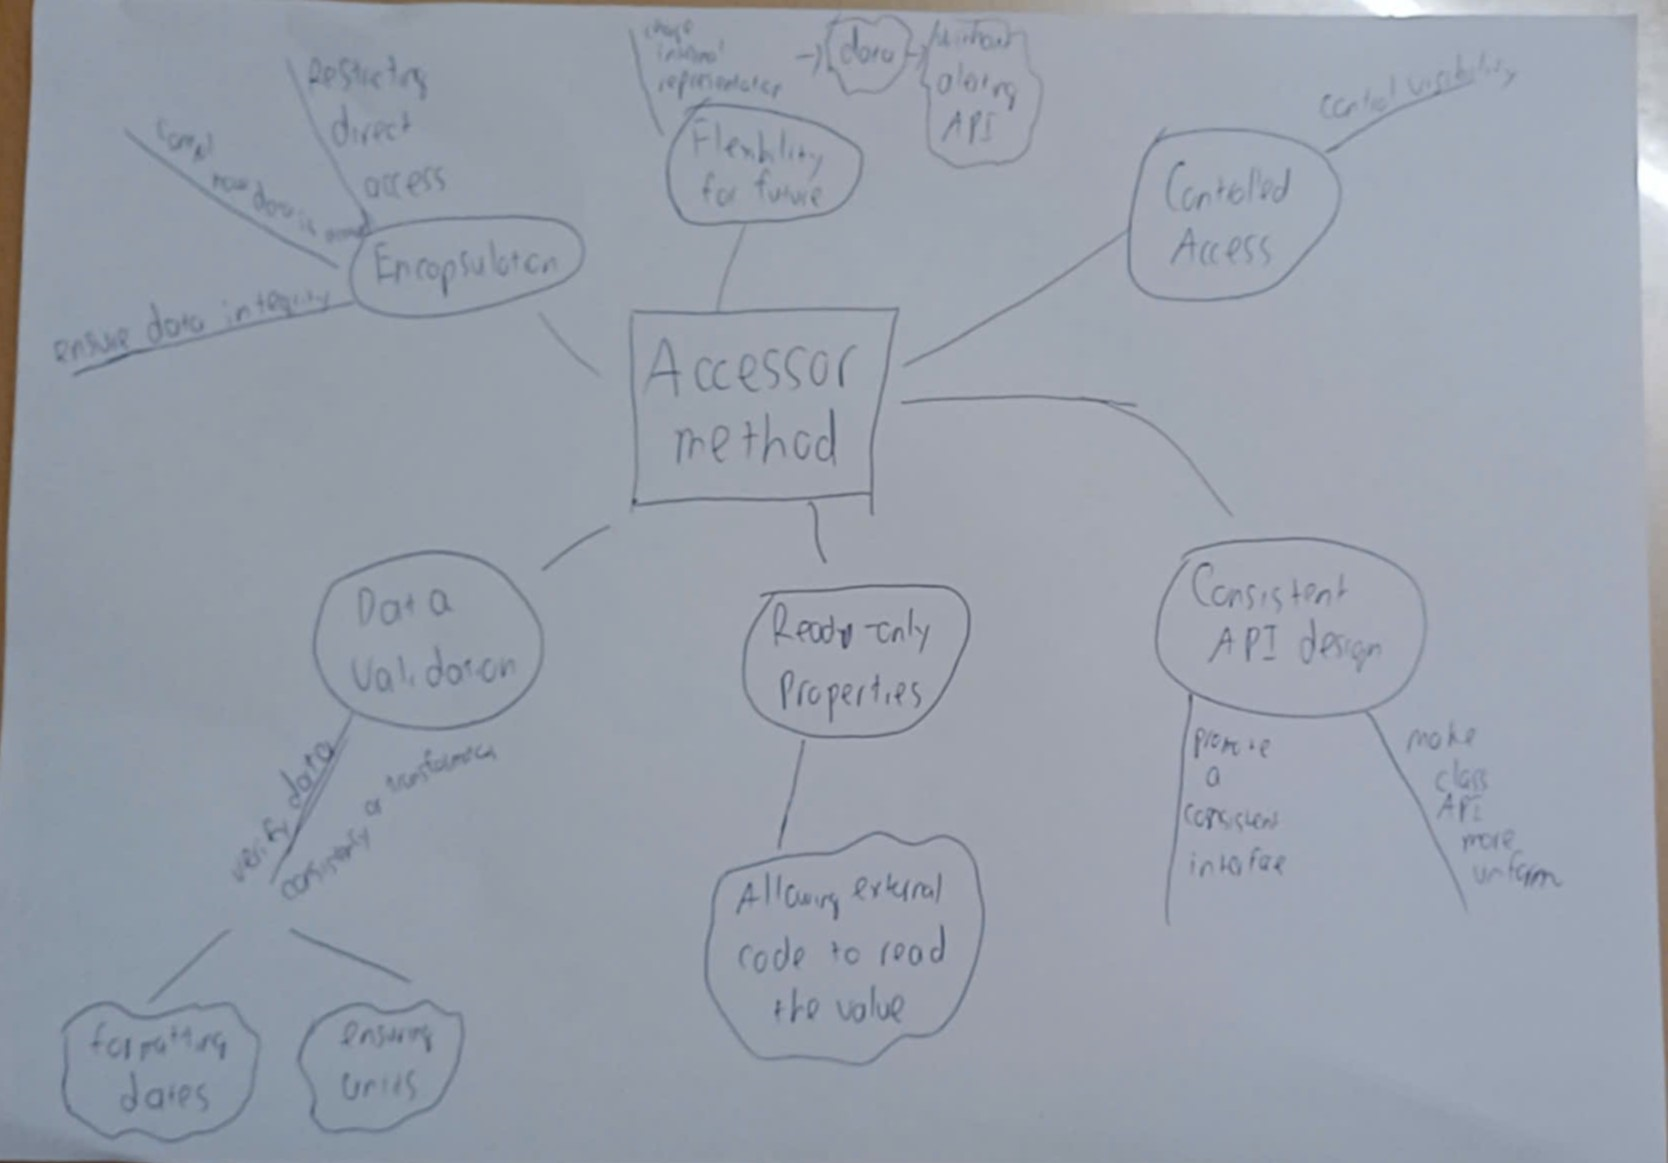 Accessor
method
Encapsulation
Restricting
direct
access
control
how data is
ensure data integrity
Flexibility
for future
internal
representation
-> data ->
without
altering
API
Controlled
Access
control visibility
Consistent
API design
promote
a
consistent
interface
make
class
API
more
uniform
Ready-only
Properties
Allowing external
code to read
the value
Data
Validation
verify data
consistency or transformation
formatting
dates
ensuring
units